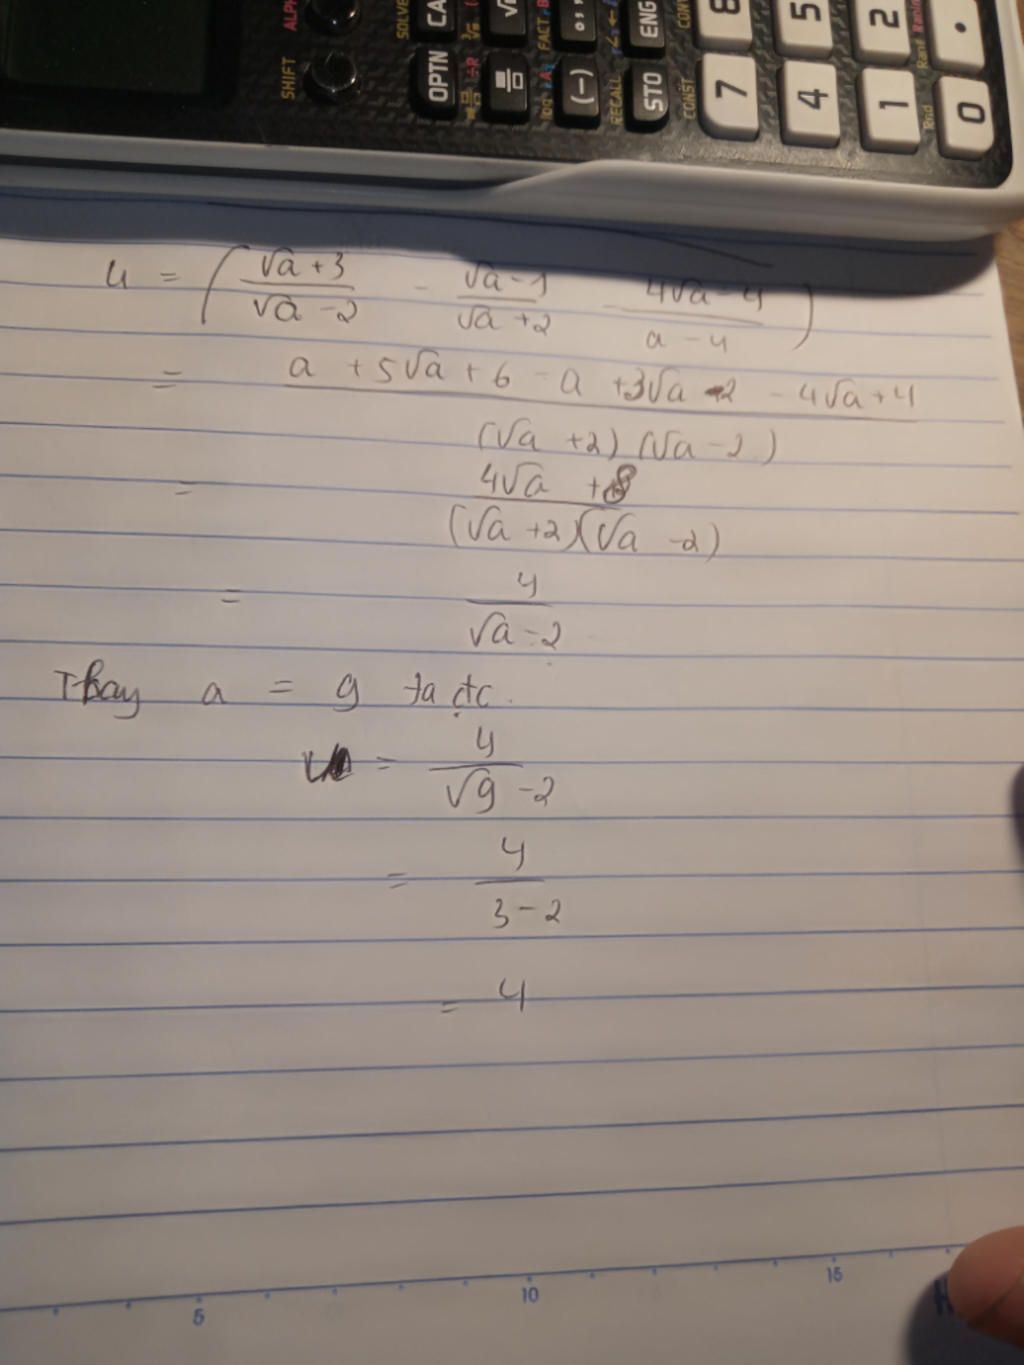 SHIFT ALPH SOLVE OPTN CA FACT B (-) RECALL STO ENG CONST CONV 7 8 4 5 1 2 Rnd Ran# RanInt 0 .
u = ( (√a + 3)/(√a - 2) - (√a - 1)/(√a + 2) - (4√a - 4)/(a - 4) )
= (a + 5√a + 6 - a + 3√a - 2 - 4√a + 4)/((√a + 2)(√a - 2))
= (4√a + 8)/((√a + 2)(√a - 2))
= 4/(√a - 2)
Thay a = 9 ta đc.
= 4/(√9 - 2)
= 4/(3 - 2)
= 4
5 10 15 H